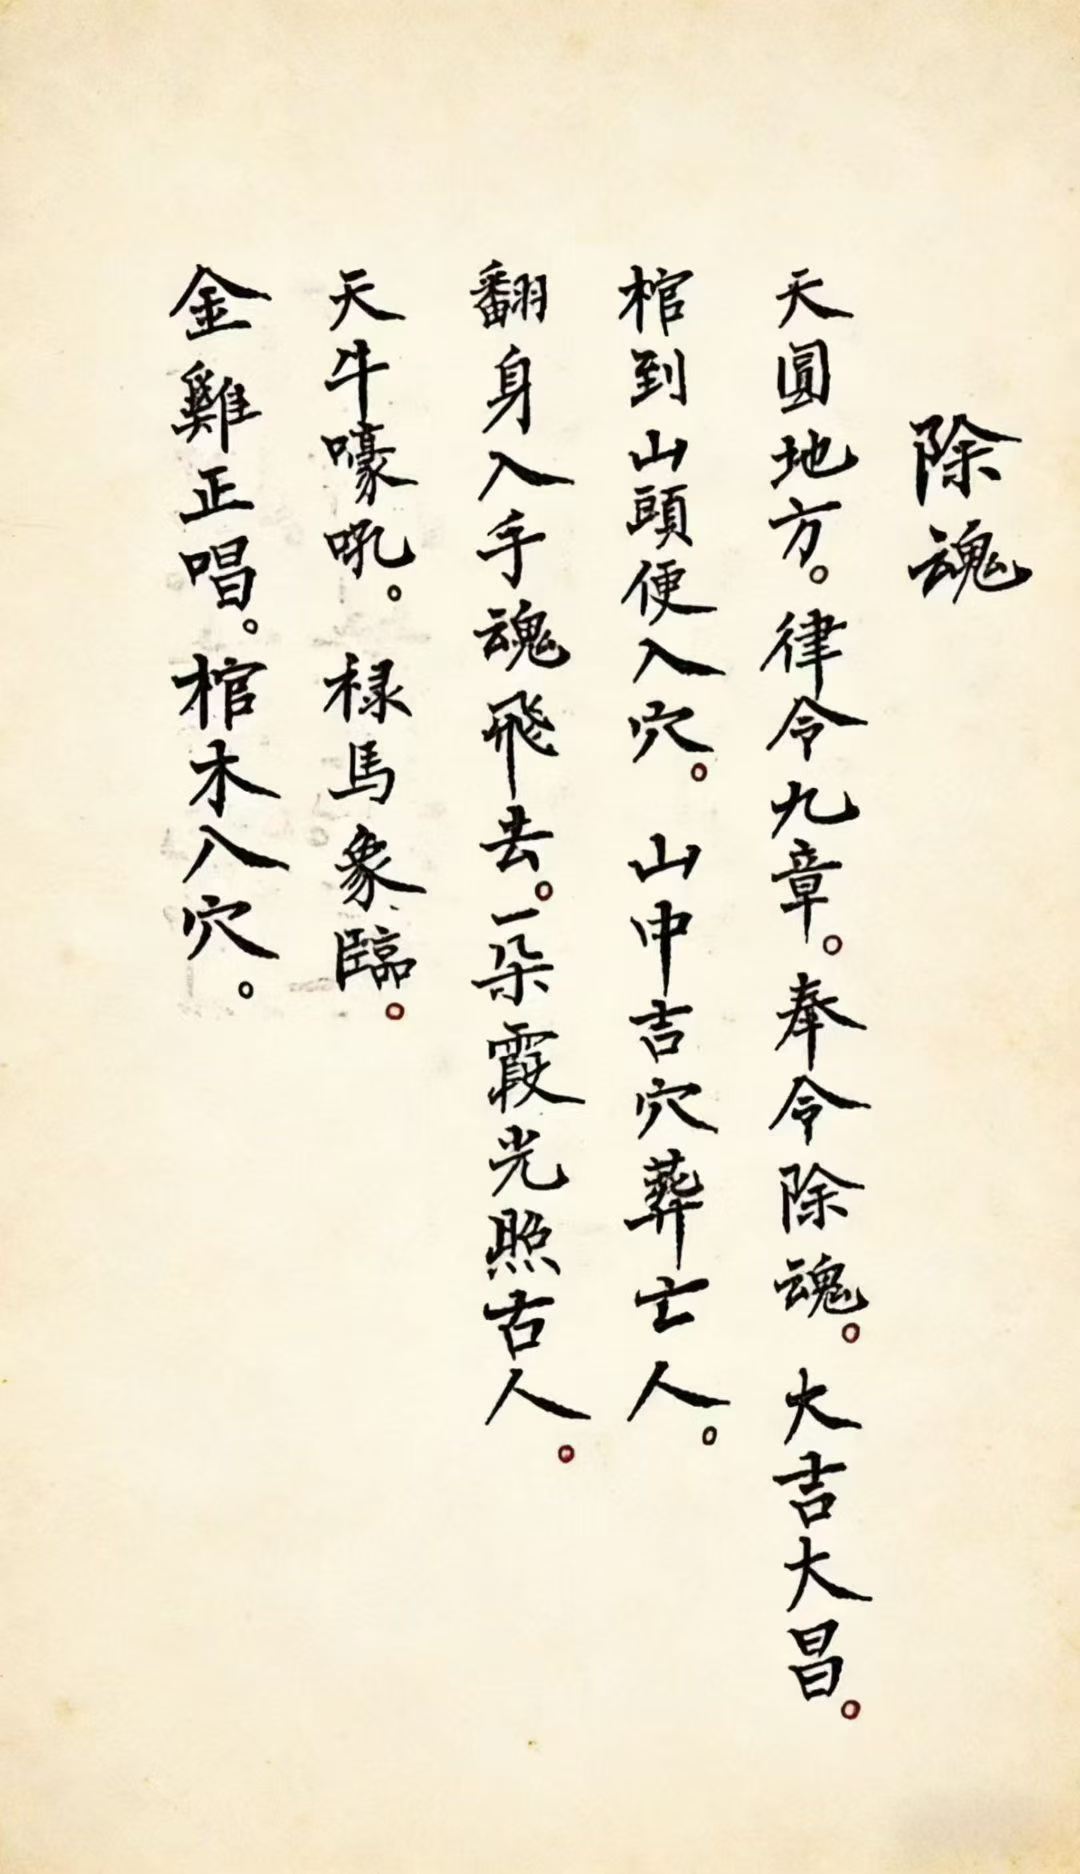 除魂
天圓地方。律令九章。奉令除魂。大吉大昌。
棺到山頭便入穴。山中吉穴葬亡人。
翻身入手魂飛去。一朵霞光照古人。
天牛嚎吼。椂馬象臨。
金雞正唱。棺木入穴。